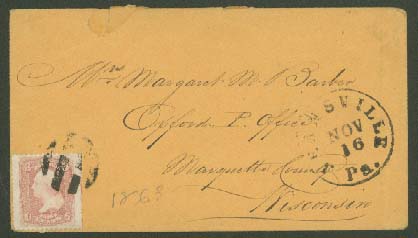 Mrs Margaret M. Barber
Oxford P. Office
Marquette County
Wisconsin
SVILLE
NOV
16
Pa.
1863